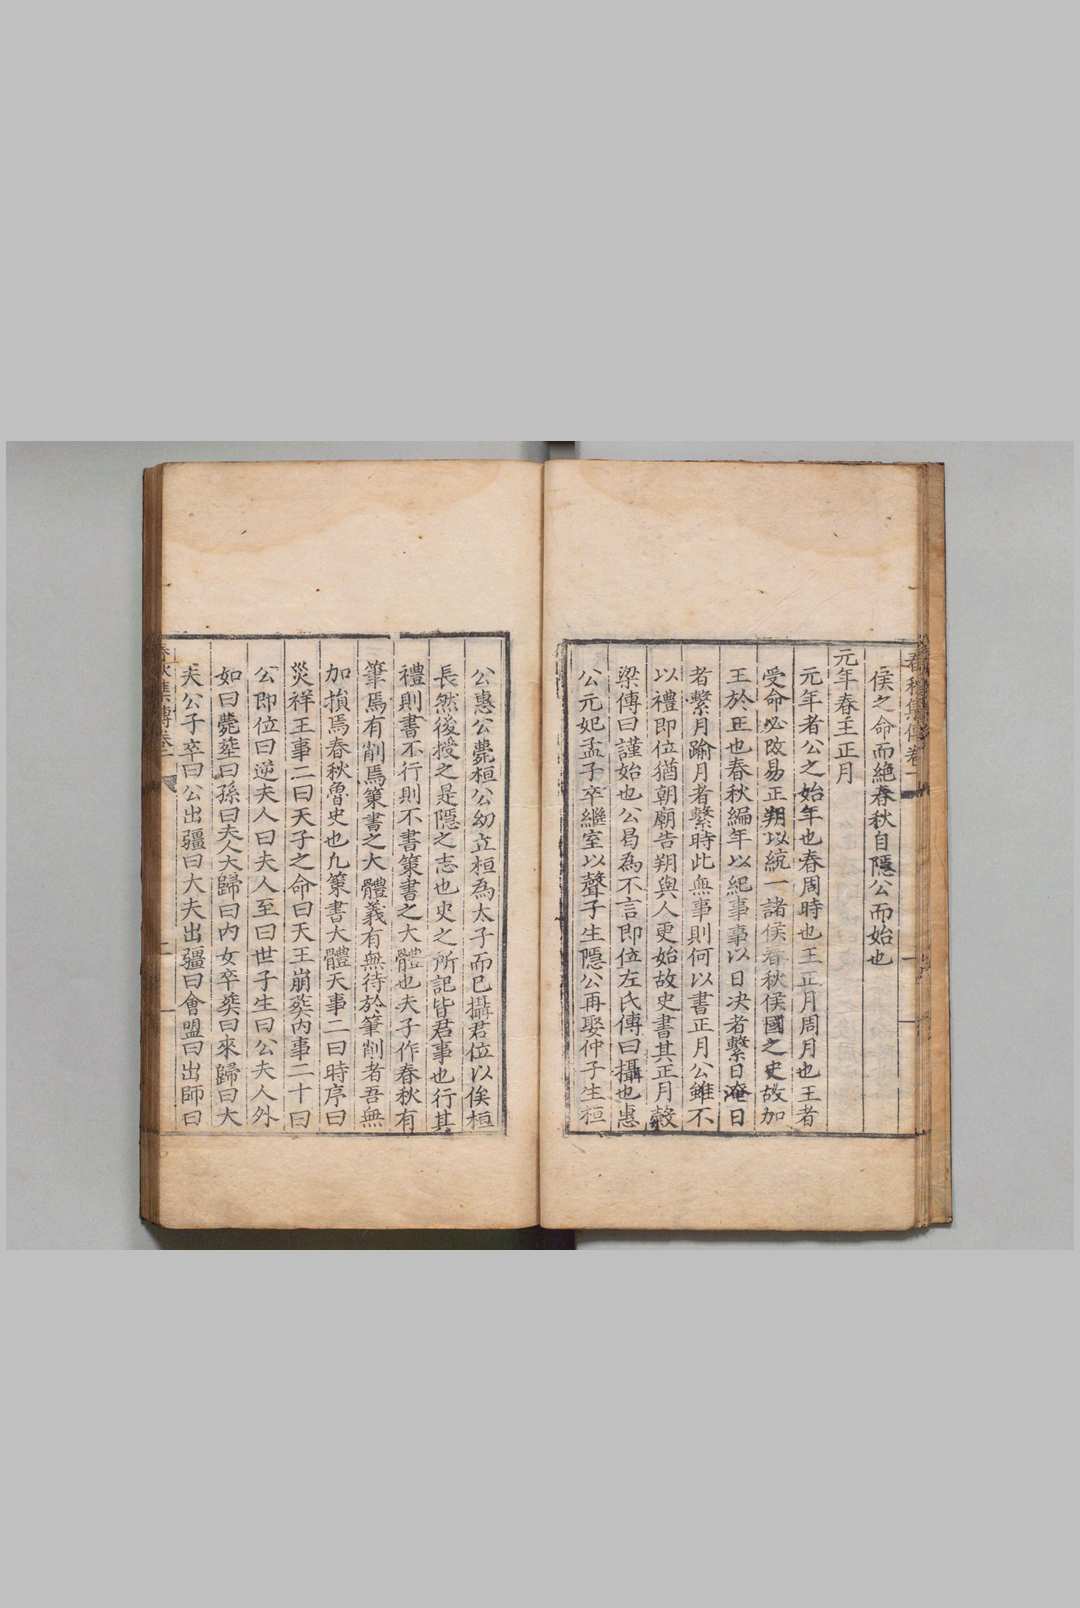 春秋集傳卷一
侯之命而絕春秋自隱公而始也
元年春王正月
元年者公之始年也春周時也王正月周月也王者
受命必改易正朔以統一諸侯春秋侯國之史故加
王於正也春秋編年以紀事事以日決者繫日淹日
者繫月踰月者繫時此無事則何以書正月公雖不
以禮即位猶朝廟告朔與人更始故史書其正月穀
梁傳曰謹始也公曷為不言即位左氏傳曰攝也惠
公元妃孟子卒繼室以聲子生隱公再娶仲子生桓
公惠公薨桓公幼立桓為太子而已攝君位以俟桓
長然後授之是隱之志也史之所記皆君事也行其
禮則書不行則不書策書之大體也夫子作春秋有
筆焉有削焉策書之大體義有無待於筆削者吾無
加損焉春秋魯史也凡策書大體天事二曰時序曰
災祥王事二曰天子之命曰天王崩葬內事二十曰
公即位曰逆夫人曰夫人至曰世子生曰公夫人外
如曰薨葬曰孫曰夫人大歸曰內女卒葬曰來歸曰大
夫公子卒曰公出疆曰大夫出疆曰會盟曰出師曰
春秋集傳卷一